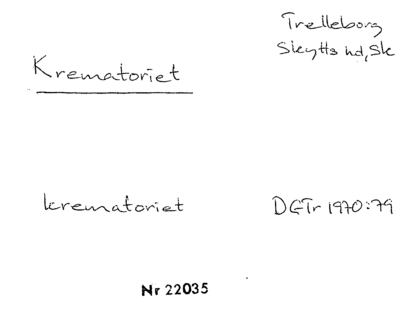 Trelleborg
Skytts hd, Sk
Krematoriet
krematoriet DGTr 1970:79
Nr 22035